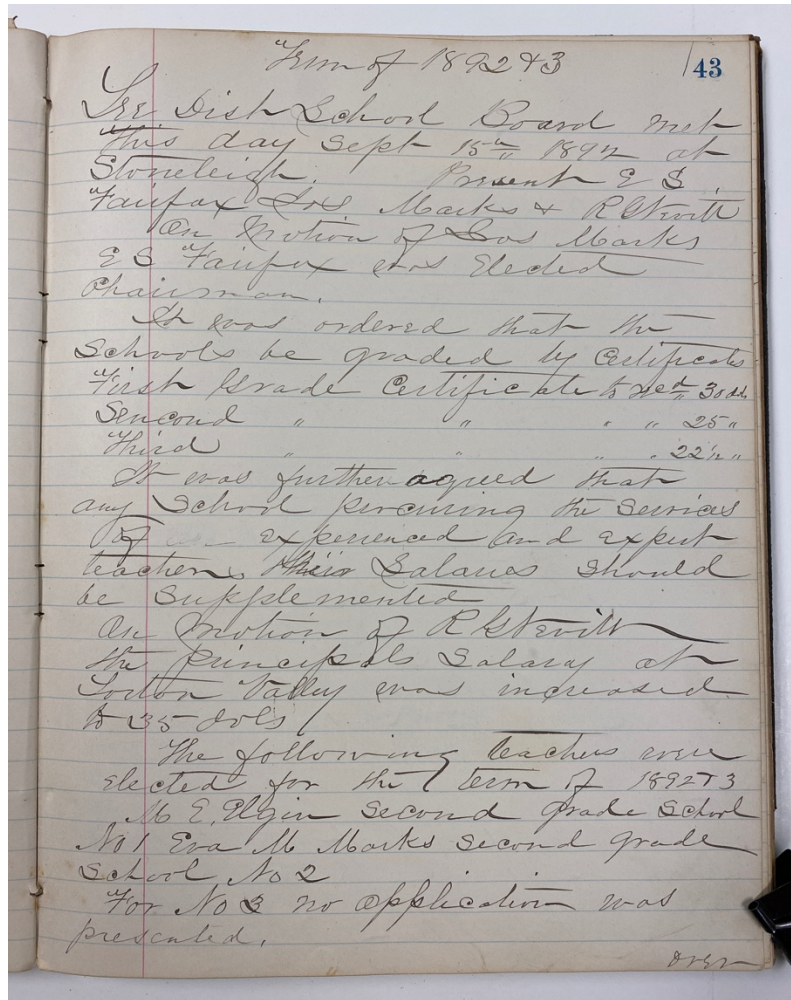 Term of 1892 & 3
43
Lee Dist School Board met
this day Sept 15th 1892 at
Stoneleigh. Present E S.
Fairfax Jos Marks & R G Nevitt
On Motion of Jos Marks
E S Fairfax was Elected
Chairman.
It was ordered that the
Schools be graded by Certificates
First Grade Certificate to recd 30 dls
Sencond " " " " 25 "
Third " " " " 22 1/2 "
It was further agreed that
any School percuring the Services
of an experienced and expert
teachers their Salaries should
be Supplemented
On Motion of R G Nevitt
the principals Salary at
Lorton Valley was increased
to 35 dols
The following teachers were
elected for the term of 1892 & 3
M E. Elgin Second grade School
No 1 Eva M Marks Second grade
School No 2
For No 3 no application was
presented.
over